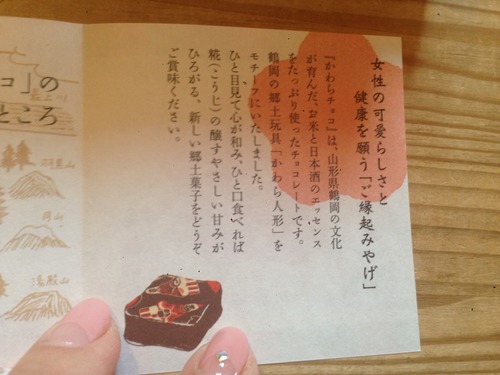 女性の可愛らしさと
健康を願う「ご縁起みやげ」
『かわらチョコ』は、山形県鶴岡の文化
が育んだ、お米と日本酒のエッセンス
をたっぷり使ったチョコレートです。
鶴岡の郷土玩具「かわら人形」を
モチーフにいたしました。
ひと目見て心が和み、ひと口食べれば
糀（こうじ）の醸すやさしい甘みが
ひろがる、新しい郷土菓子をどうぞ
ご賞味ください。
コ」の
ところ
最上川
羽黒山
月山
湯殿山